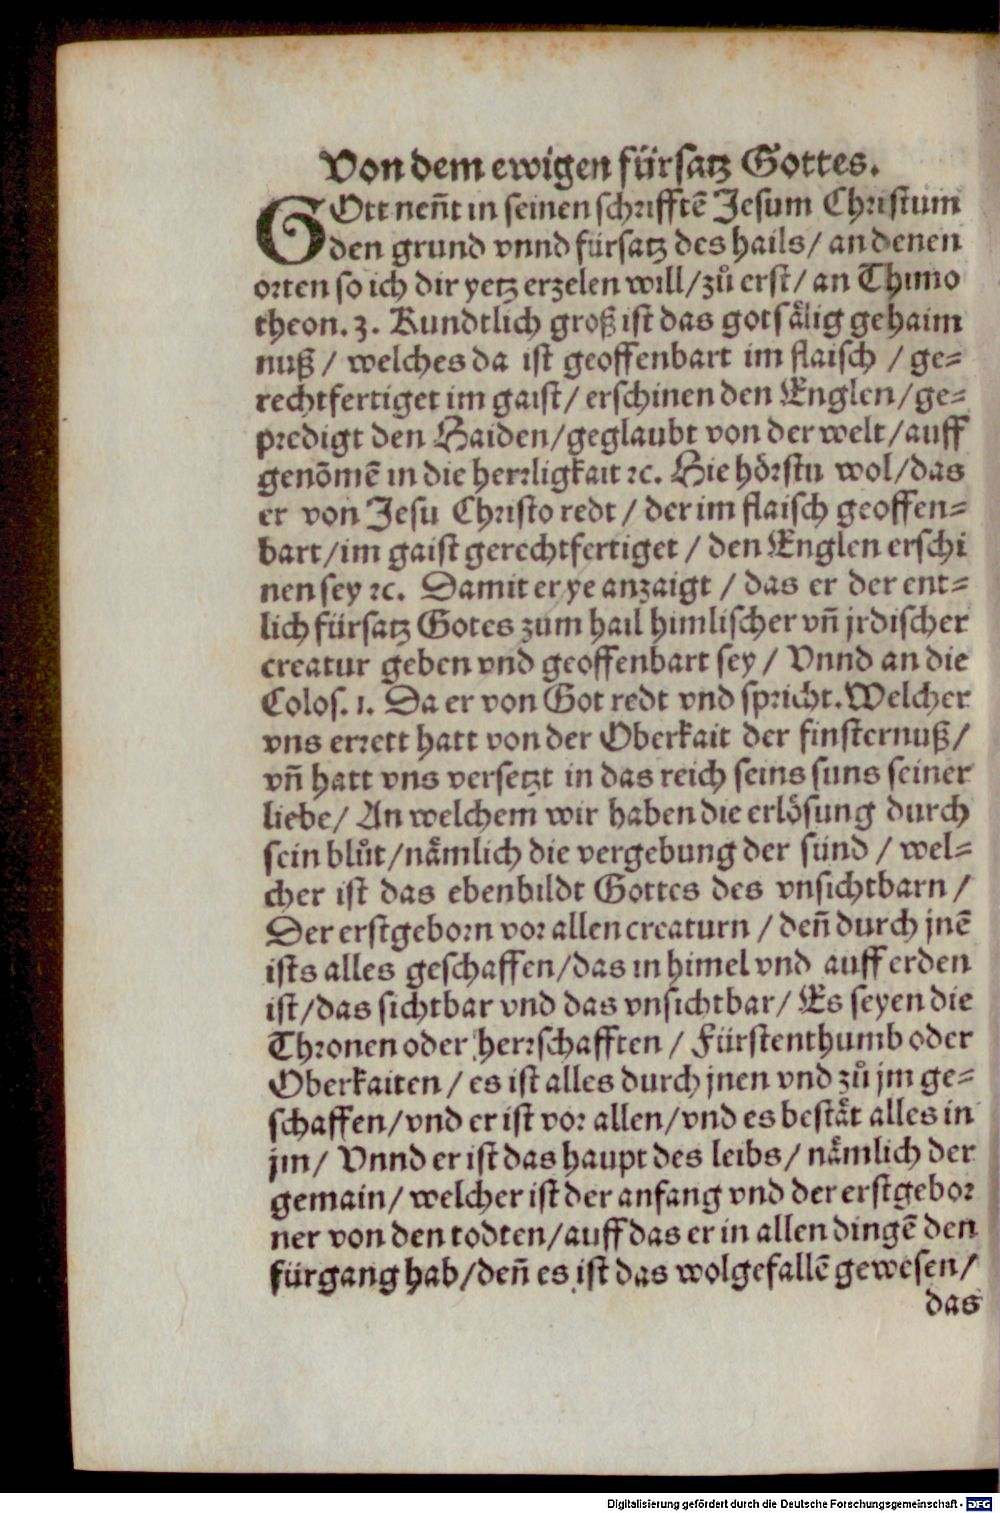 Von dem ewigen fürsatz Gottes.
GOtt neñt in seinen schrifftẽ Jesum Christum
den grund vnnd fürsatz des hails/ an denen
orten so ich dir yetz erzelen will/zů erst/ an Thimo
theon. 3. Kundtlich groß ist das gotsälig gehaim
nuß / welches da ist geoffenbart im flaisch / ge=
rechtfertiget im gaist/ erschinen den Englen/ge=
predigt den Haiden/geglaubt von der welt/auff
genõmẽ in die herrligkait ꝛc. Hie hörstu wol/das
er von Jesu Christo redt / der im flaisch geoffen=
bart/im gaist gerechtfertiget / den Englen erschi
nen sey ꝛc. Damit er ye anzaigt / das er der ent=
lich fürsatz Gotes zum hail himlischer vñ jrdischer
creatur geben vnd geoffenbart sey / Vnnd an die
Colos. 1. Da er von Got redt vnd spricht. Welcher
vns errett hatt von der Oberkait der finsternuß/
vñ hatt vns versetzt in das reich seins suns seiner
liebe/ An welchem wir haben die erlösung durch
sein blůt/nämlich die vergebung der sünd / wel=
cher ist das ebenbildt Gottes des vnsichtbarn /
Der erstgeborn vor allen creaturn / deñ durch jnẽ
ists alles geschaffen/das in himel vnd auff erden
ist/das sichtbar vnd das vnsichtbar/ Es seyen die
Thronen oder herrschafften / Fürstenthumb oder
Oberkaiten / es ist alles durch jnen vnd zů jm ge=
schaffen/vnd er ist vor allen/vnd es bestät alles in
jm/ Vnnd er ist das haupt des leibs/ nämlich der
gemain/ welcher ist der anfang vnd der erstgebor
ner von den todten/auff das er in allen dingẽ den
fürgang hab/deñ es ist das wolgefallẽ gewesen/
das
Digitalisierung gefördert durch die Deutsche Forschungsgemeinschaft - DFG